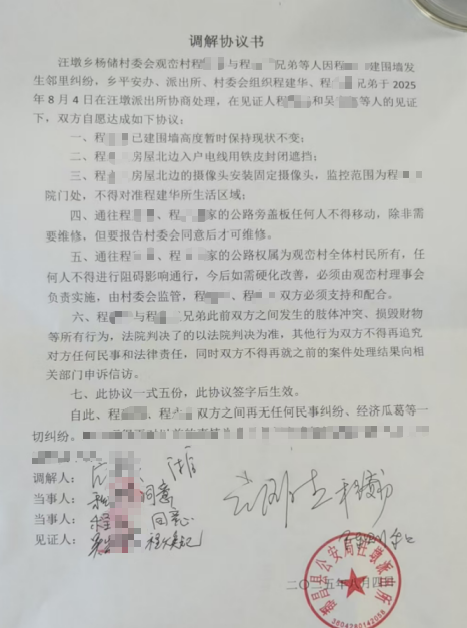 调解协议书
汪墩乡杨储村委会观峦村程 与程 兄弟等人因程 建围墙发
生邻里纠纷，乡平安办、派出所、村委会组织程建华、程 兄弟于 2025
年 8 月 4 日在汪墩派出所协商处理，在见证人程 和吴 等人的见证
下，双方自愿达成如下协议：
一、程 已建围墙高度暂时保持现状不变；
二、程 房屋北边入户电线用铁皮封闭遮挡；
三、程 房屋北边的摄像头安装固定摄像头，监控范围为程
院门处，不得对准程建华所生活区域；
四、通往程 、程 家的公路旁盖板任何人不得移动，除非需
要维修，但要报告村委会同意后才可维修。
五、通往程 、程 家的公路权属为观峦村全体村民所有，任
何人不得进行阻碍影响通行，今后如需硬化改善，必须由观峦村理事会
负责实施，由村委会监管，程 、程 双方必须支持和配合。
六、程 与程 兄弟此前双方之间发生的肢体冲突、损毁财物
等所有行为，法院判决了的以法院判决为准，其他行为双方不得再追究
对方任何民事和法律责任，同时双方不得再就之前的案件处理结果向相
关部门申诉信访。
七、此协议一式五份，此协议签字后生效。
自此、程 、程 双方之间再无任何民事纠纷、经济瓜葛等一
切纠纷。
调解人：
当事人： 同意
当事人：程 同意
见证人：
二〇二五年八月四日
都昌县公安局汪墩派出所